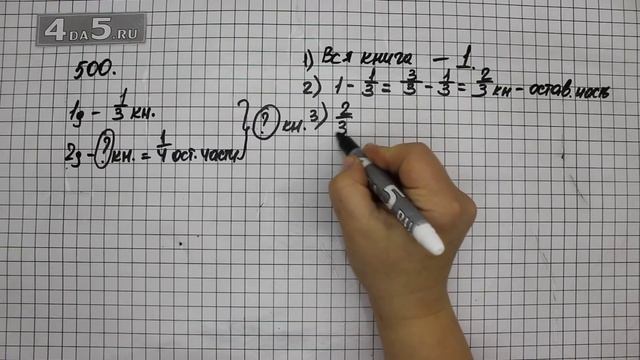 4DA5.RU
500.
1д - 1/3 кн.
2д - ? кн. = 1/4 ост. части
? кн.
1) Вся книга - 1.
2) 1 - 1/3 = 3/3 - 1/3 = 2/3 кн - остав. часть
3) 2/3